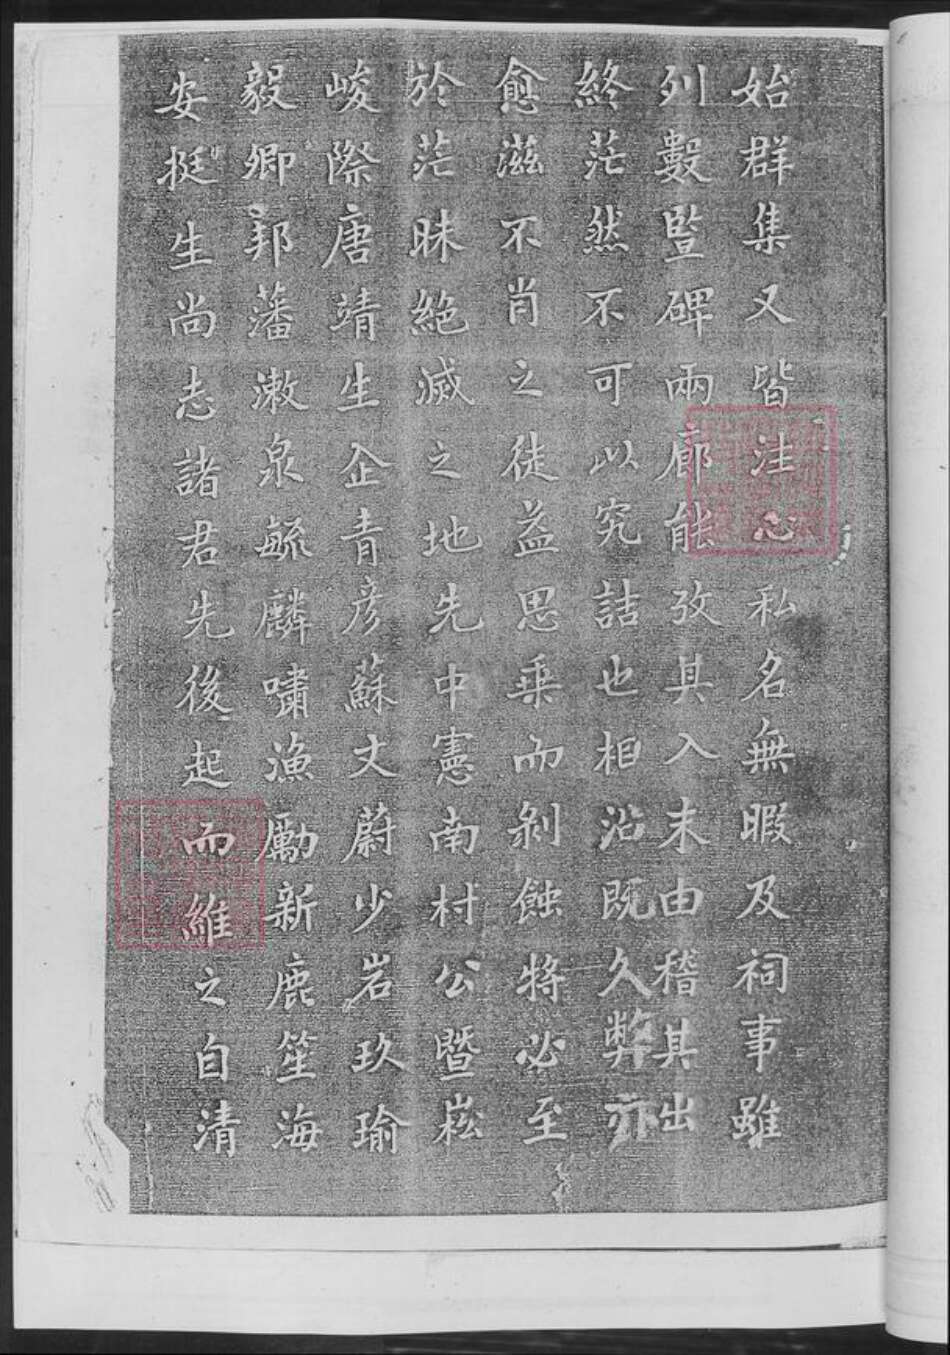 始群集又皆注心私名無暇及祠事雖
列數豎碑兩廊能攷其入末由稽其出
終茫然不可以究詰也相沿既久弊亦
愈滋不肖之徒益思乗而剝蝕將必至
於茫昧絕滅之地先中憲南村公暨崧
峻際唐靖生企青彥蘇丈蔚少岩玖瑜
毅卿邦藩漱泉毓麟嘯漁勵新鹿笙海
安挺生尚志諸君先後起而維之自清